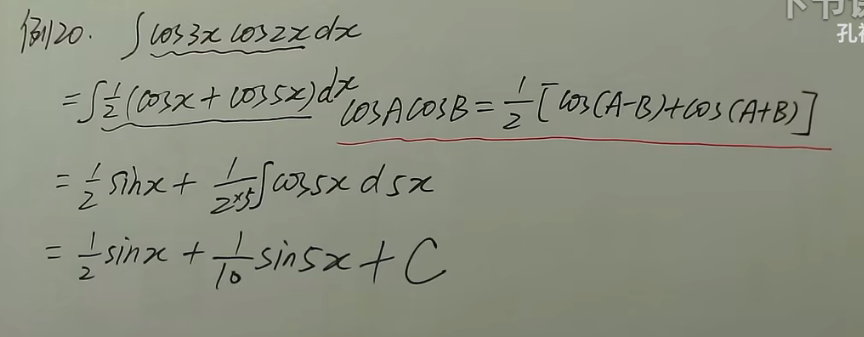 下节课
孔祥
例20. ∫cos3x cos2x dx
=∫1/2(cosx+cos5x)dx cosAcosB=1/2[cos(A-B)+cos(A+B)]
=1/2 sinx+1/(2×5)∫cos5x d5x
=1/2 sinx+1/10 sin5x+C